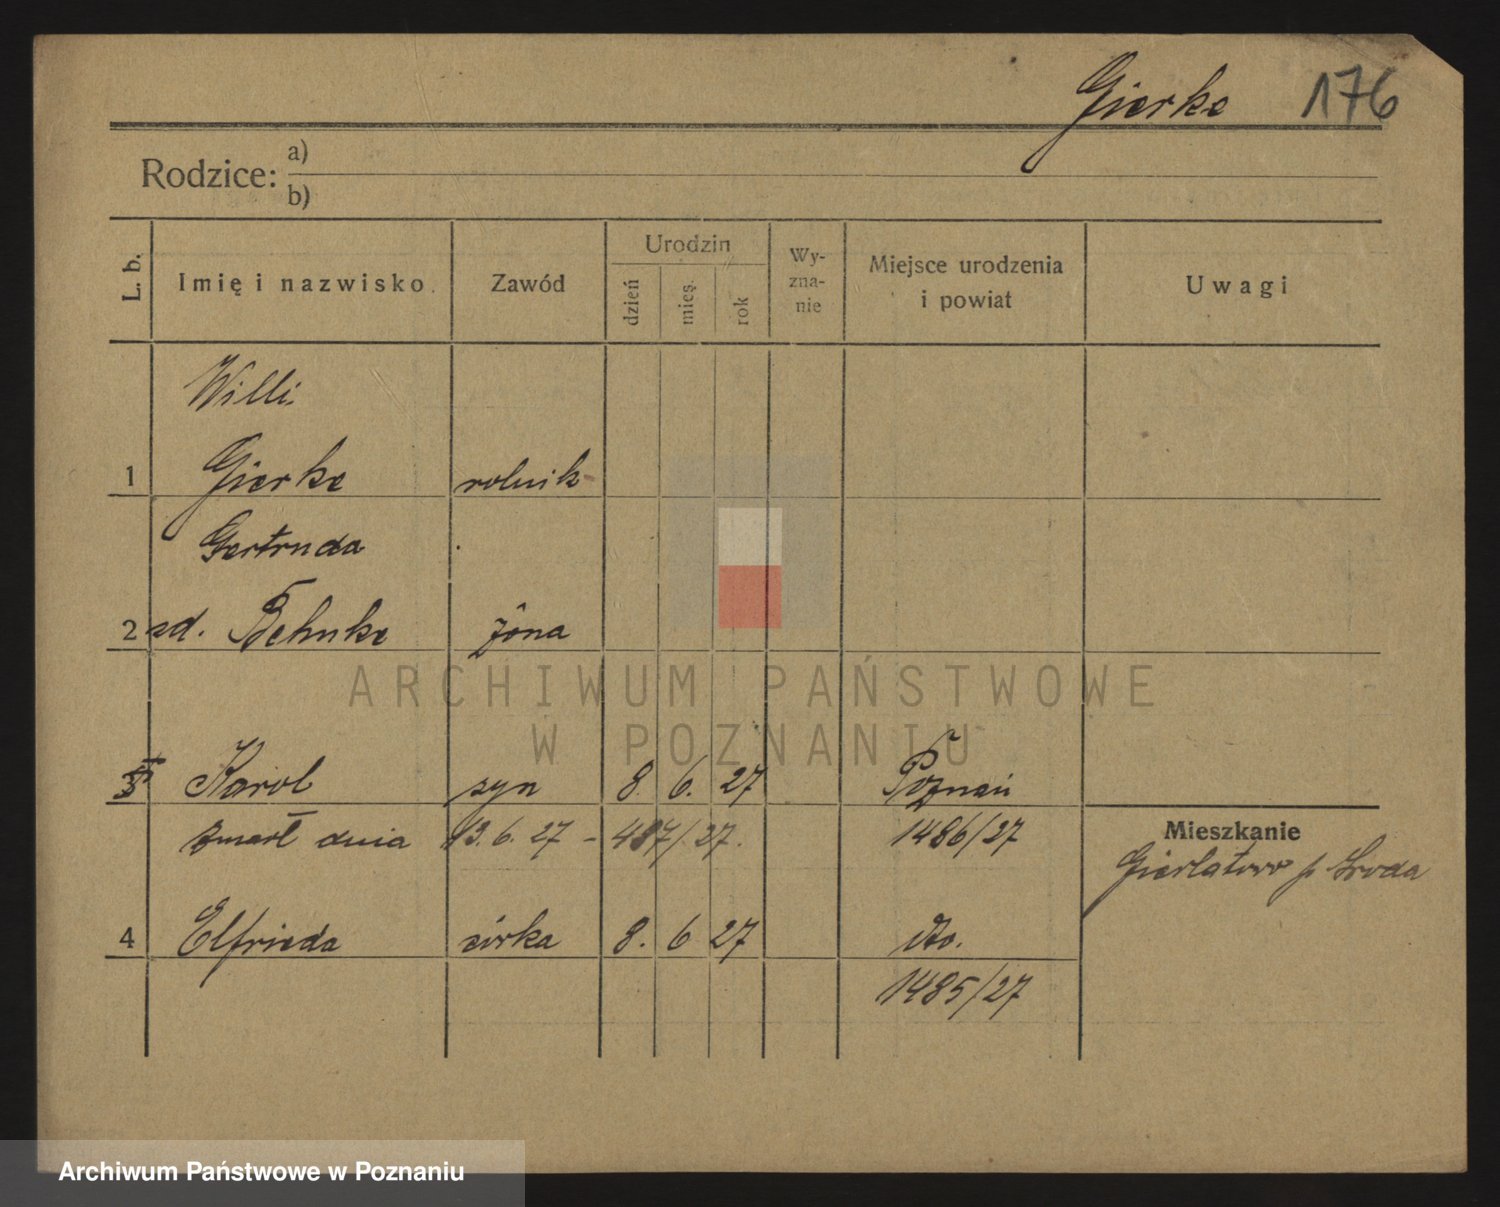 Gierke 176
Rodzice: a)
b)
L. b. Imię i nazwisko. Zawód Urodzin dzień mies. rok Wy-zna-nie Miejsce urodzenia i powiat Uwagi
Willi
1 Gierke rolnik
Gertruda
2 zd. Behnke żona
ARCHIWUM PAŃSTWOWE
W POZNANIU
3 Karol syn 8. 6. 27 Poznań
zmarł dnia 13. 6. 27 - 487/27. 1486/27
Mieszkanie
Gierłatowo p Środa
4 Elfrieda córka 8. 6 27 dto.
1485/27
Archiwum Państwowe w Poznaniu